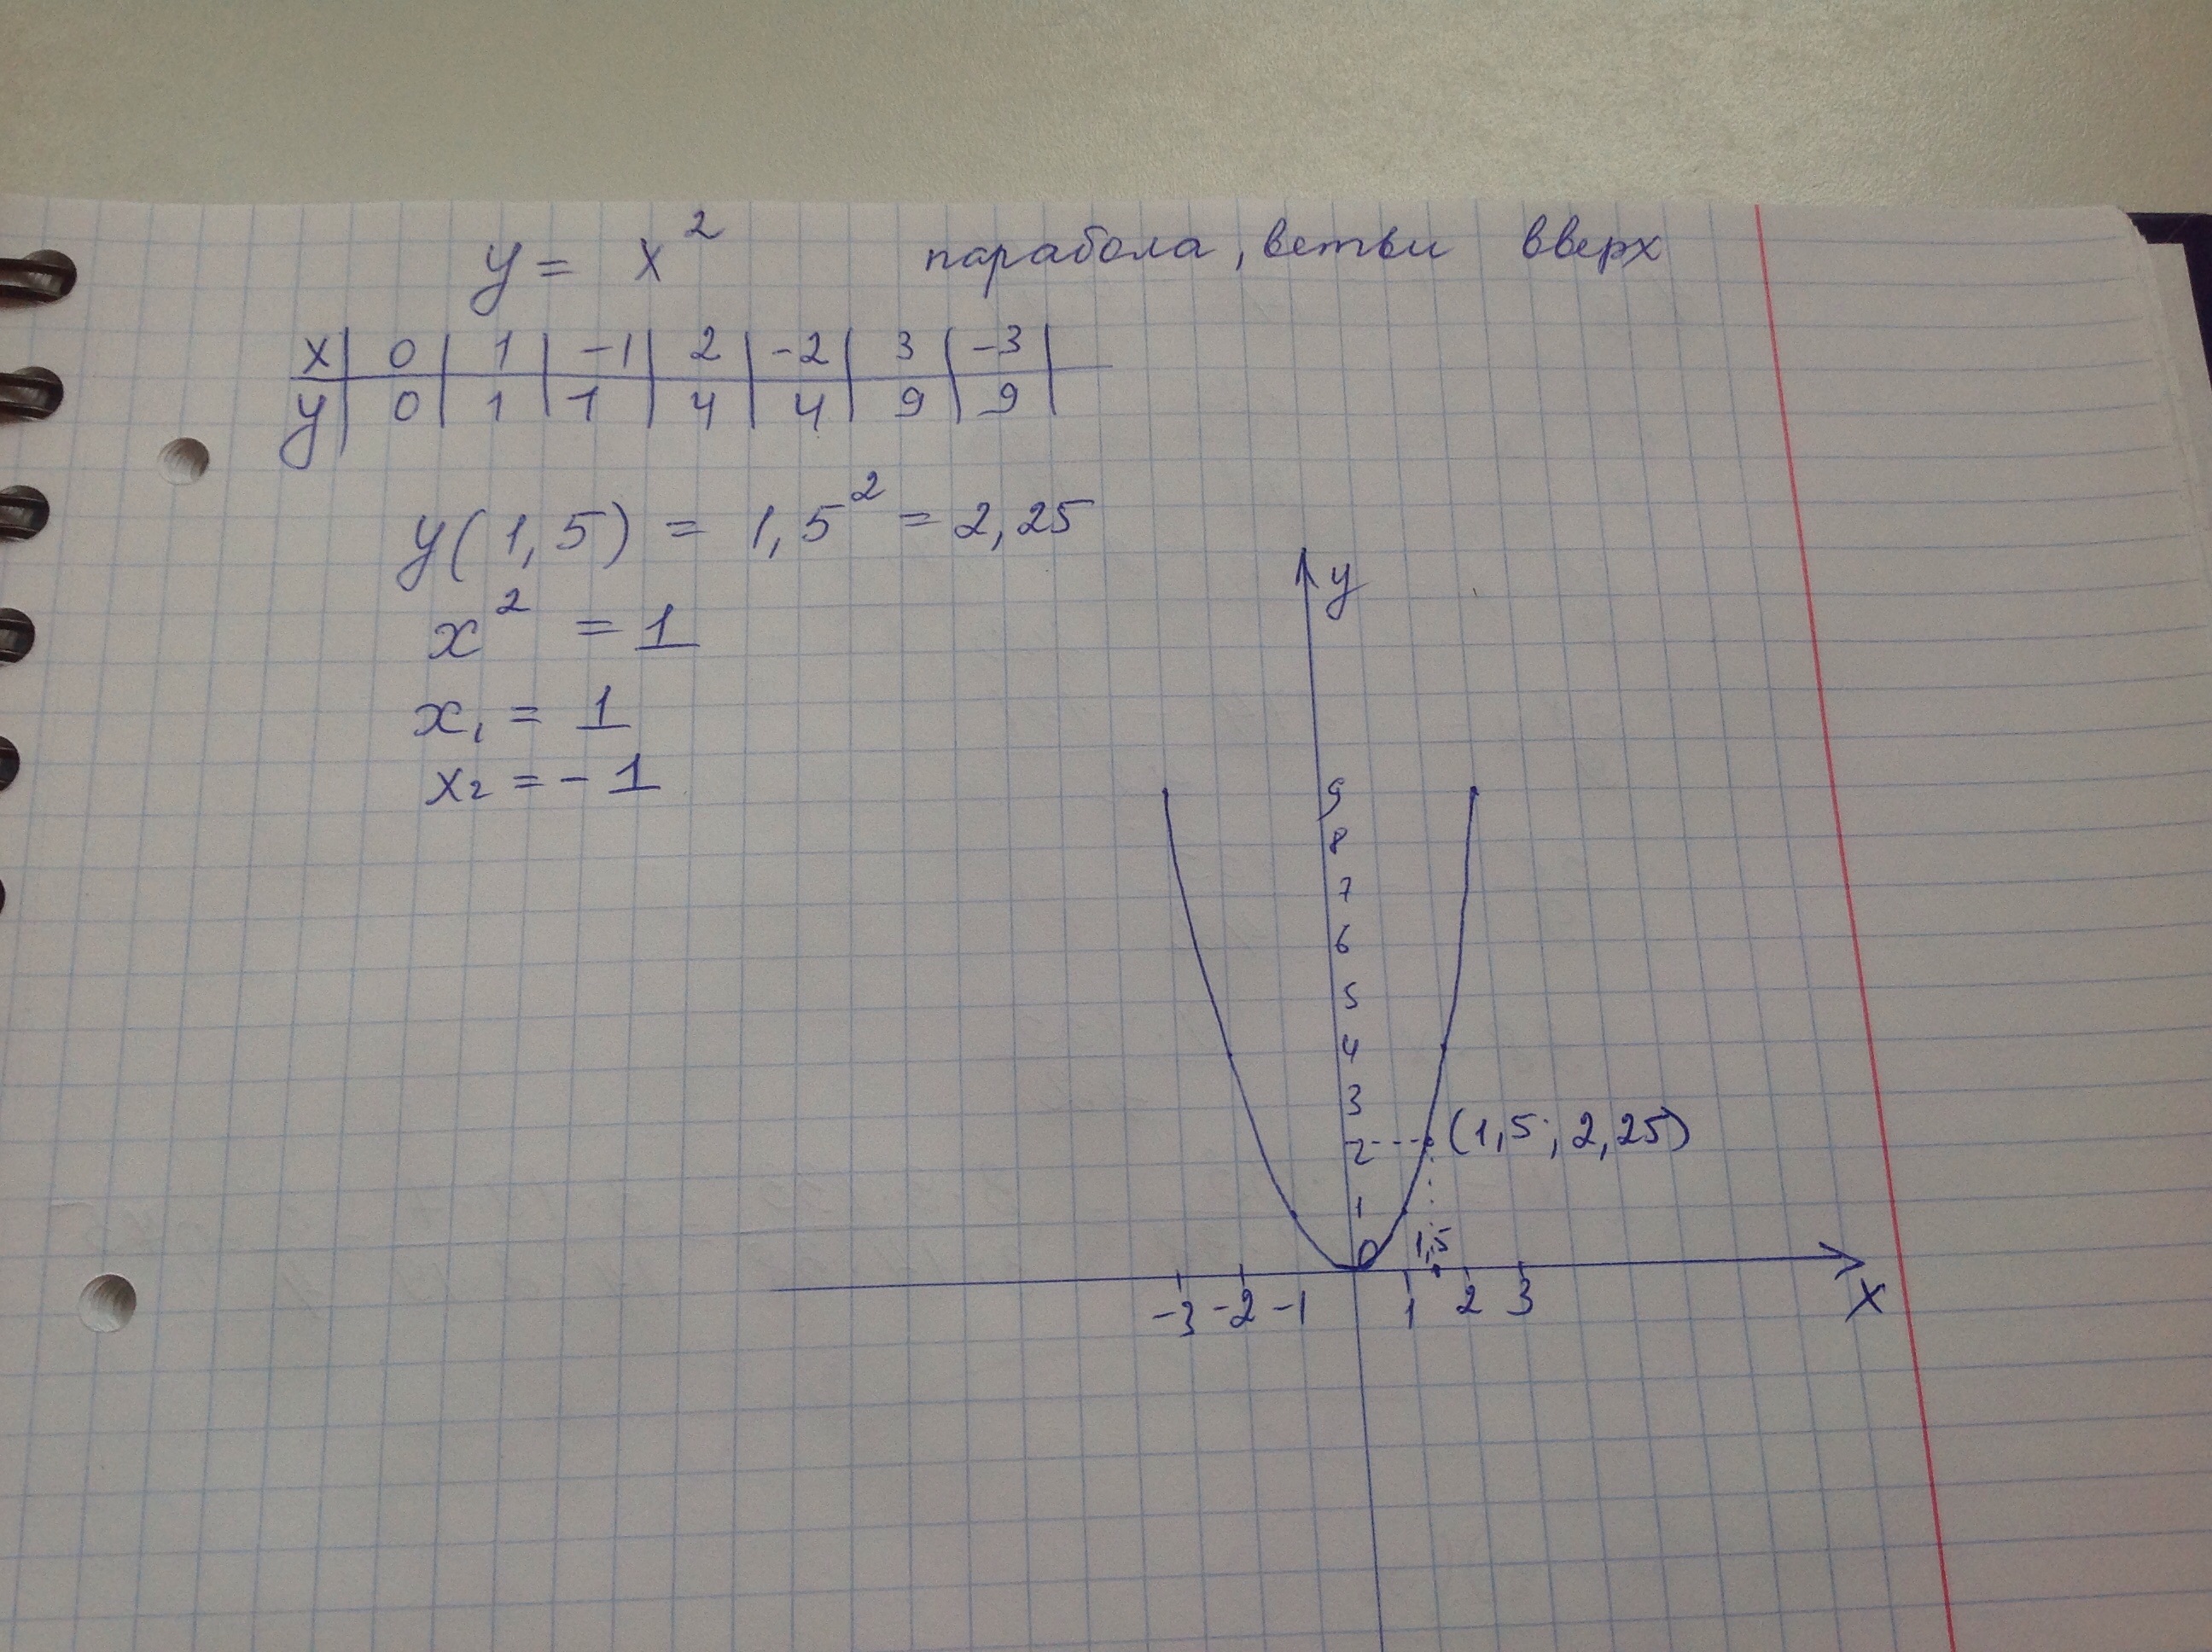 y = x²
парабола, ветви вверх
x | 0 | 1 | -1 | 2 | -2 | 3 | -3 |
y | 0 | 1 | 1 | 4 | 4 | 9 | 9 |
y(1,5) = 1,5² = 2,25
x² = 1
x₁ = 1
x₂ = -1
y
9
8
7
6
5
4
3
2
(1,5; 2,25)
1
0
1,5
-3 -2 -1 1 2 3
x